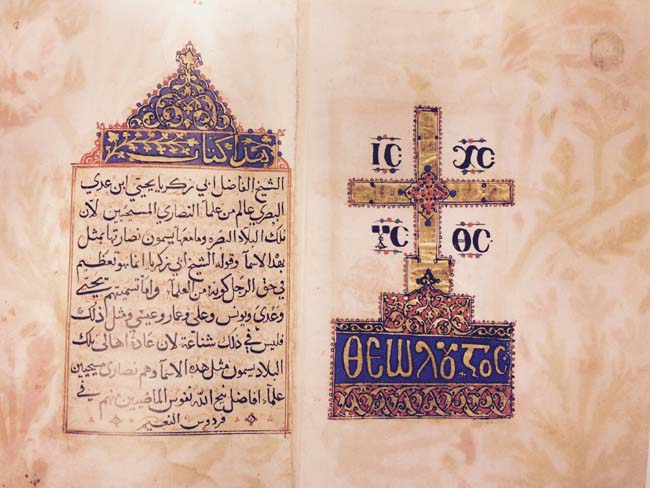 هذا كتاب
الشيخ الفاضل ابي زكريا يحيي ابن عدي
البصري عالم من علماء النصاري المسيحيين لان
تلك البلاد البصره ومامعها يسمون نصارتها بمثل
هذه الاسماء وقوله الشيخ ابي زكريا انما هو تعظيم
في حق الرجل كونه من العلماء واما تسميتهم يحيي
وعدي ويونس وعلي وعمار وعيسي ومثل ذلك
فليس في ذلك شناعة لان عادة اهالي تلك
البلاد يسمون مثل هذه الاسماء وهم نصاري مسيحيين
علماء افاضل نيح الله نفوس الماضيين منهم في
فردوس النعيم
ⲓ̅ⲥ̅ ⲭ̅ⲥ̅
ⲩ̅ⲥ̅ ⲑ̅ⲥ̅